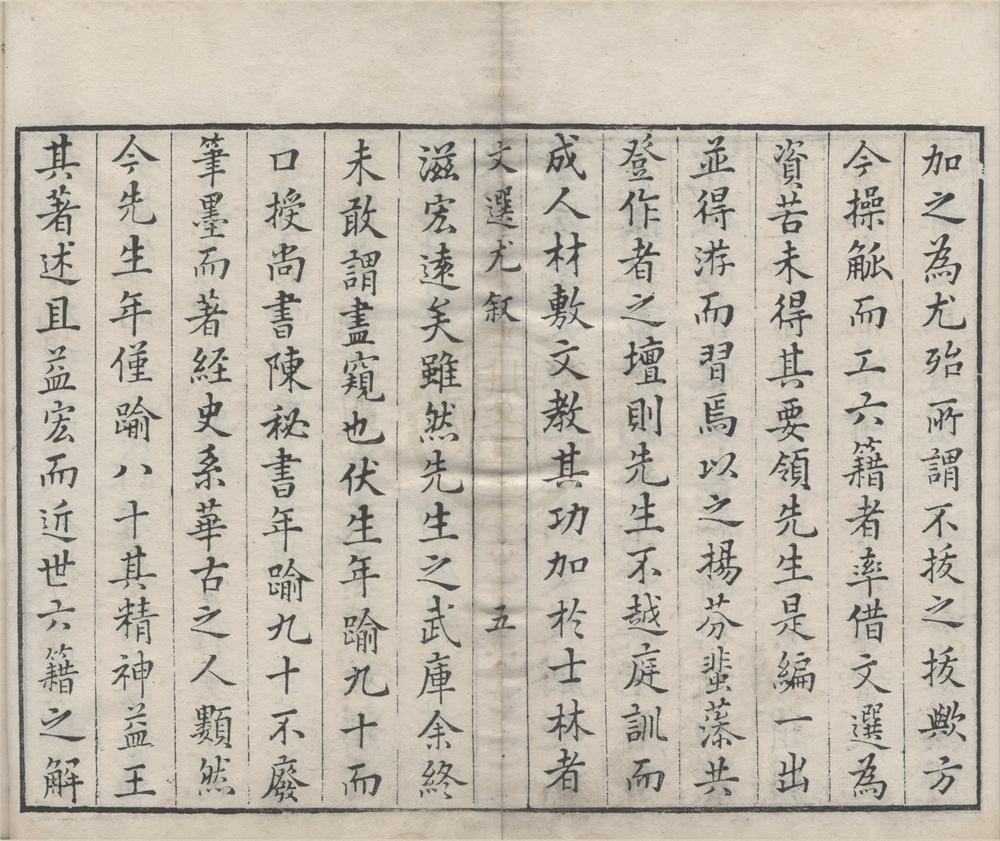 加之為尤殆所謂不拔之拔歟方
今操觚而工六籍者率借文選為
資苦未得其要領先生是編一出
並得游而習焉以之揚芬蜚藻共
登作者之壇則先生不越庭訓而
成人材敷文教其功加於士林者
文選尤敘　五
滋宏遠矣雖然先生之武庫余終
未敢謂盡窺也伏生年踰九十而
口授尚書陳秘書年踰九十不廢
筆墨而著經史系華古之人類然
今先生年僅踰八十其精神益王
其著述且益宏而近世六籍之解